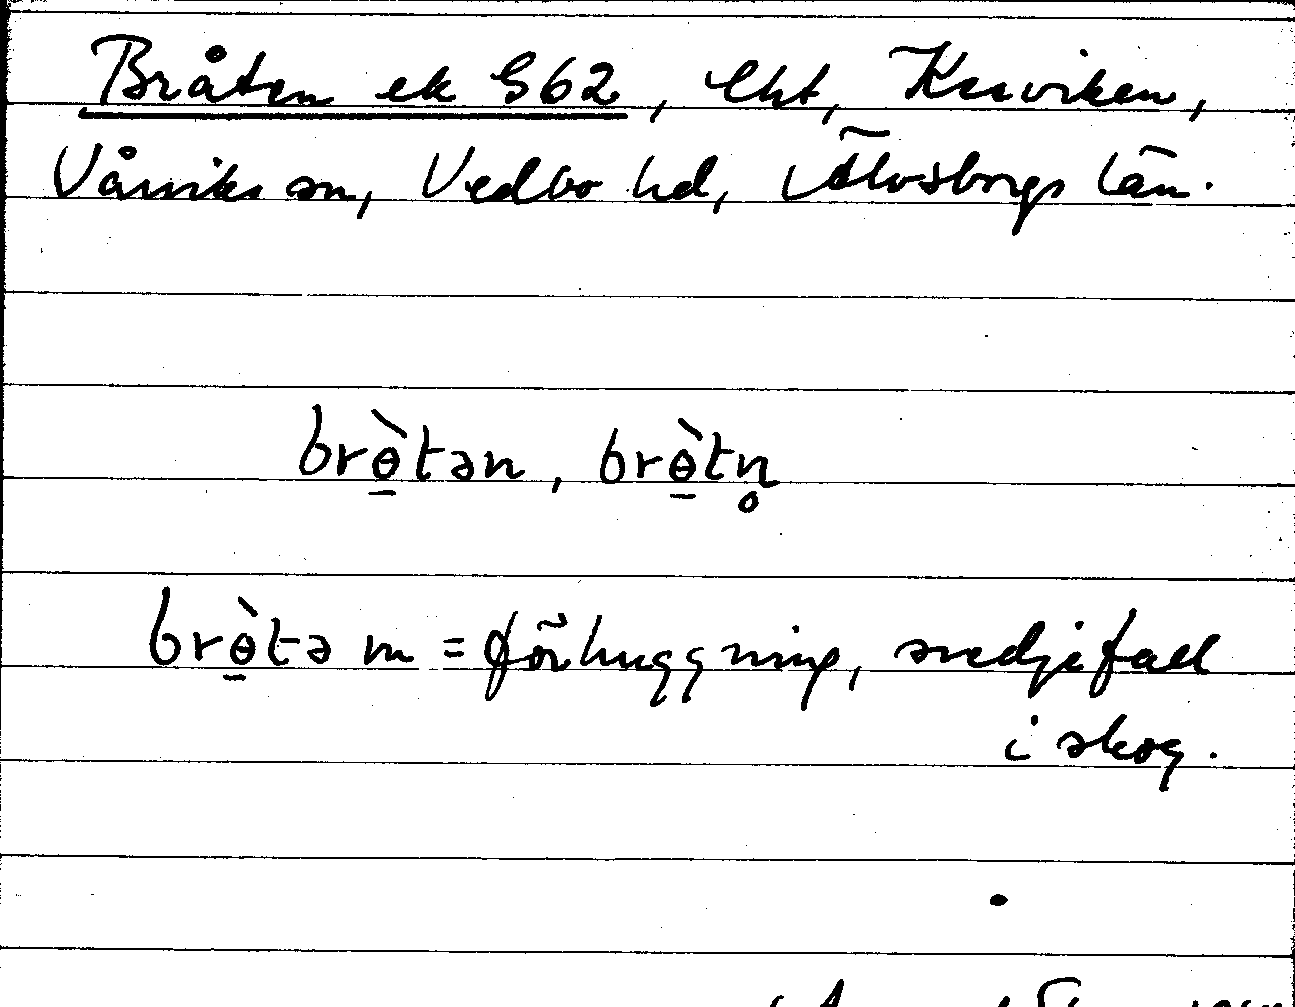 Bråten ek S62, lht, Kesviken,
Vårviks sn, Vedbo hd, Älvsborgs län.
brɵ̠̀tən, brɵ̠̀tn̥
brɵ̠̀tə m = förhuggning, svedjefall
i skog.